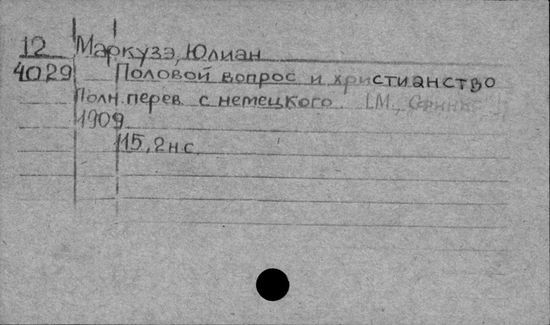 12 Маркузэ, Юлиан
4029 Половой вопрос и христианство
Полн. перев. с немецкого. [М.,
1909
115, 2 н.с.